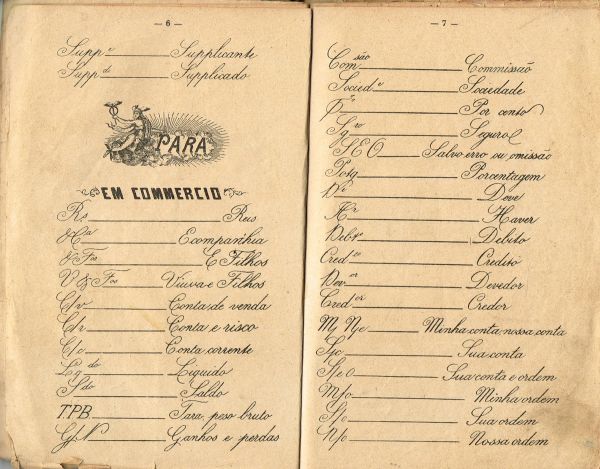 — 6 —
Supp.e Supplicante
Supp.do Supplicado
PARA
EM COMMERCIO
Rs. Reis
& Cia E companhia
& Fos E Filhos
V & Fos Viuva e Filhos
C/v Conta de venda
C/r Conta e risco
C/c Conta corrente
Lq.do Liquido
S.do Saldo
T.P.B. Tara, peso bruto
G/N Ganhos e perdas
— 7 —
Com.são Commissão
Socied.e Sociedade
Por cento
Sg.ro Seguro
S E O Salvo erro ou omissão
Potg Porcentagem
De Deve
Hr Haver
Debto Debito
Cred.to Credito
Dev.or Devedor
Cred.or Credor
M/ N/c Minha conta, nossa conta
S/c Sua conta
S/c O Sua conta e ordem
M/o Minha ordem
S/o Sua ordem
N/o Nossa ordem